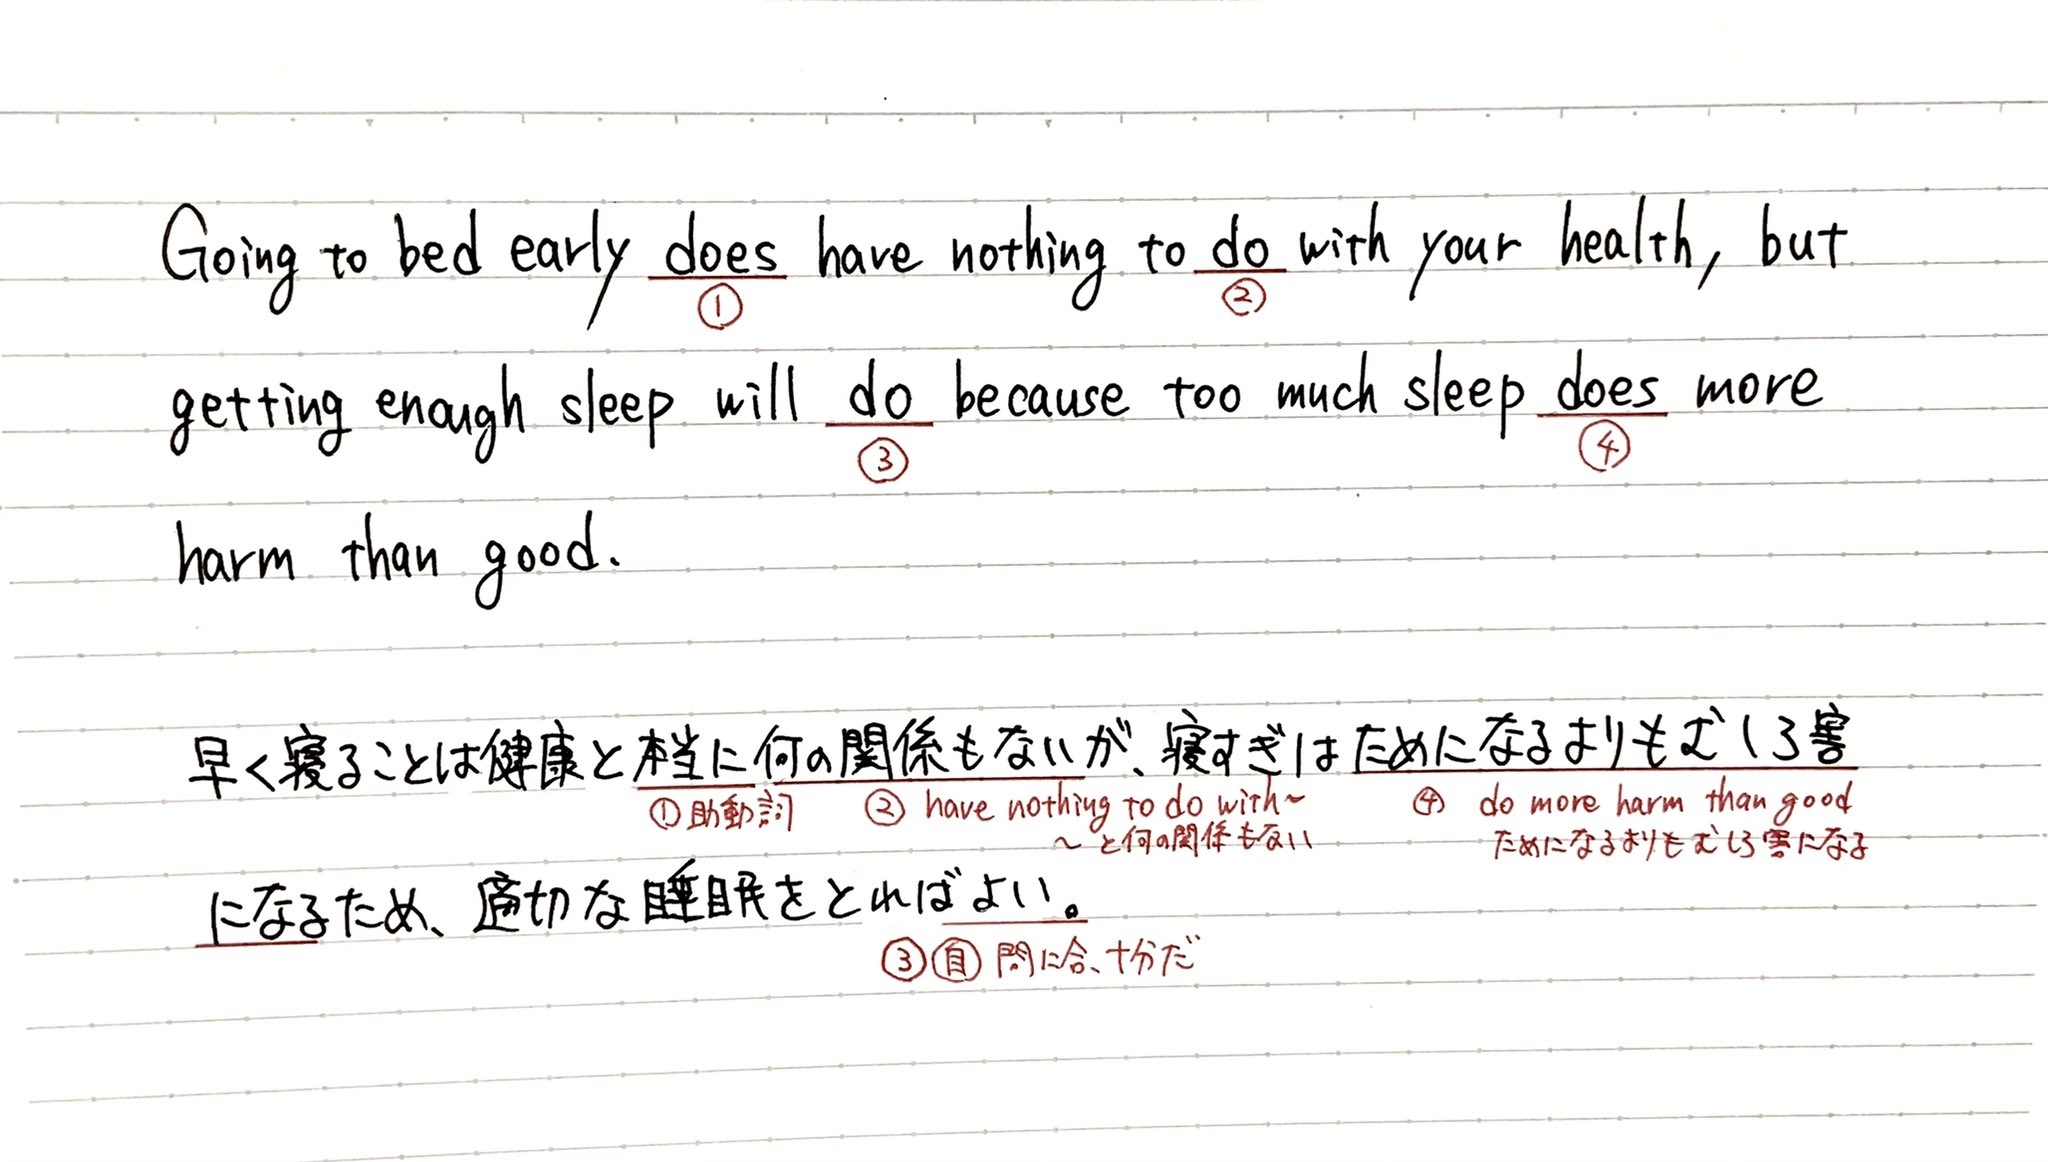 Going to bed early does have nothing to do with your health, but
① ②
getting enough sleep will do because too much sleep does more
③ ④
harm than good.
早く寝ることは健康と本当に何の関係もないが、寝すぎはためになるよりもむしろ害
①助動詞 ② have nothing to do with~ ④ do more harm than good
~と何の関係もない ためになるよりもむしろ害になる
になるため、適切な睡眠をとればよい。
③自 間に合、十分だ